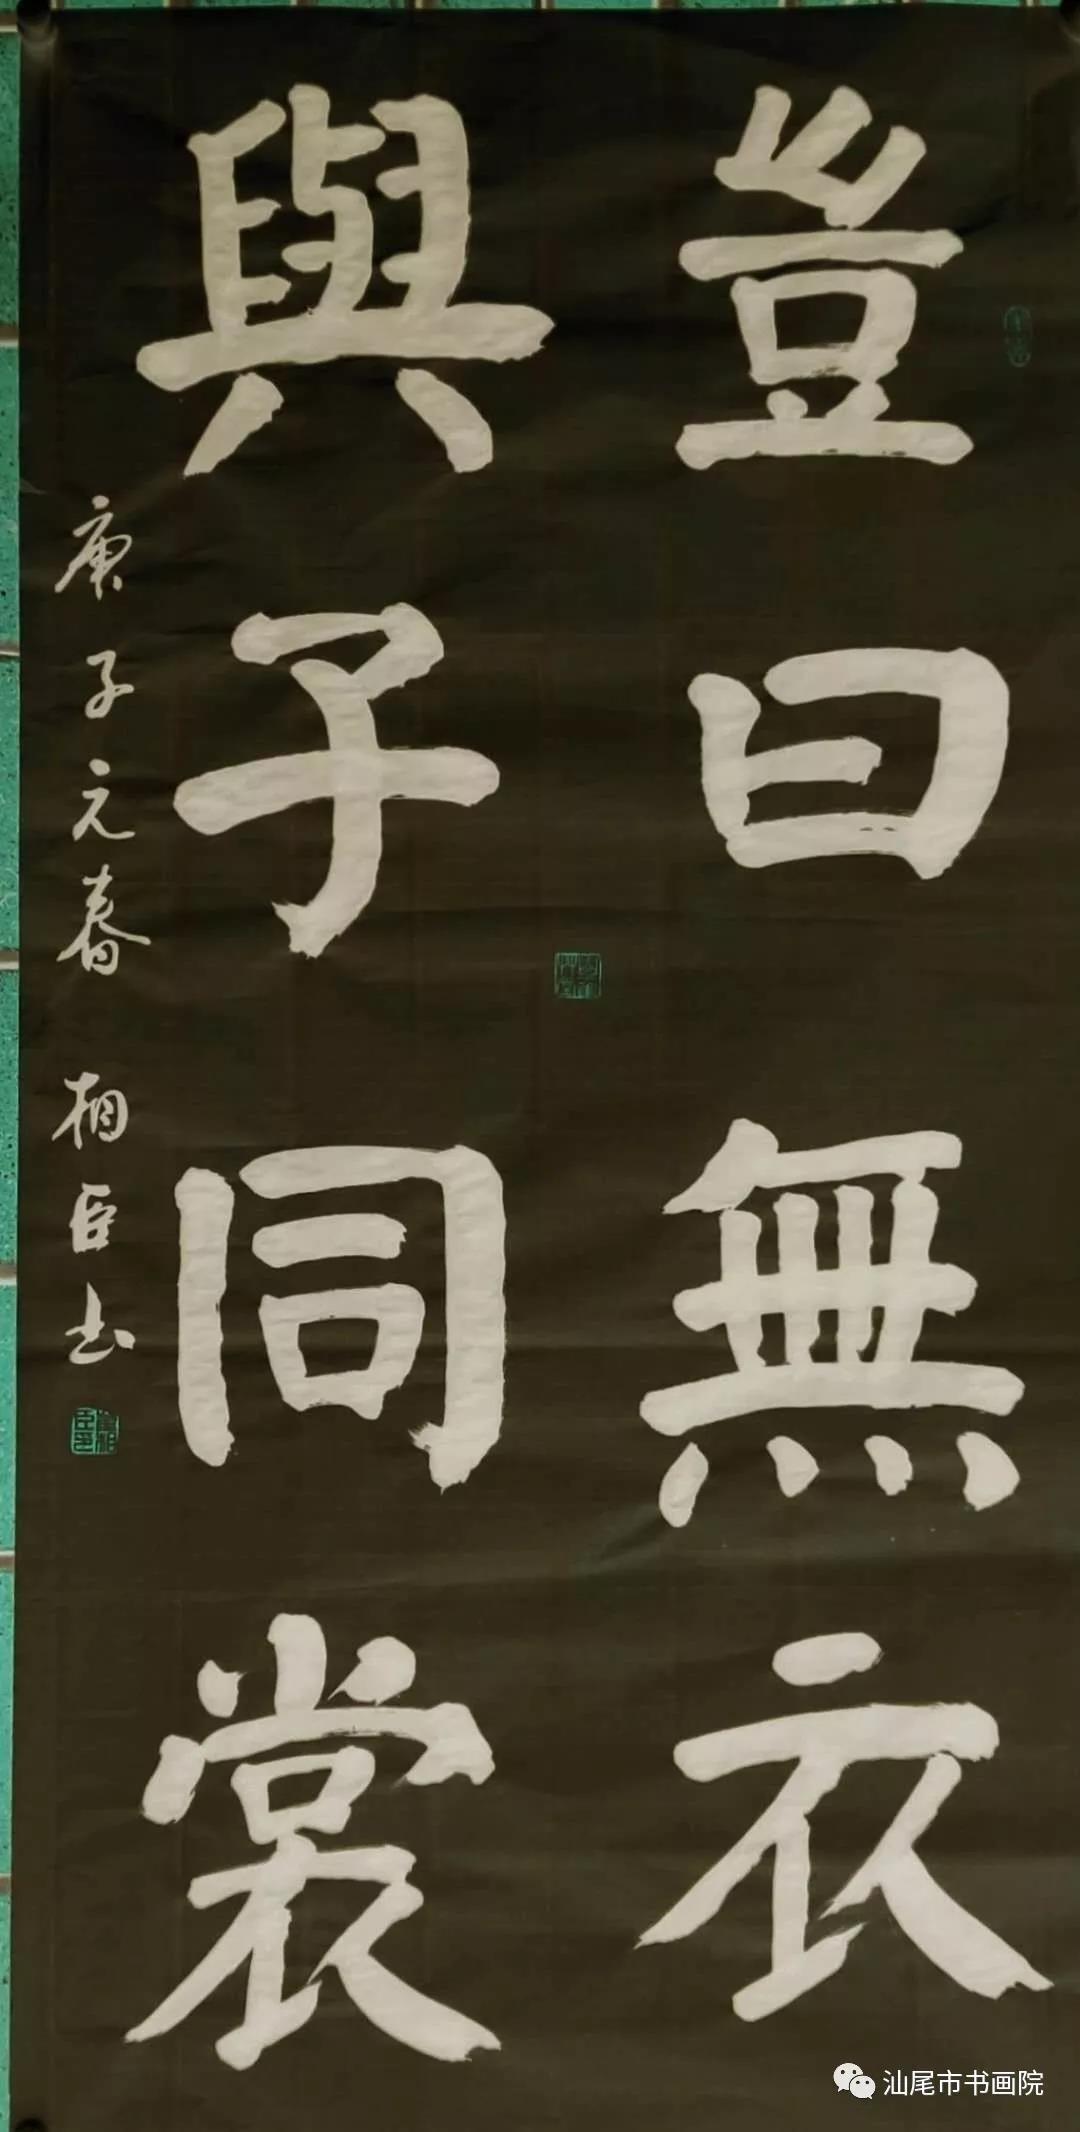 豈曰無衣
與子同裳
庚子元春 相臣书
汕尾市书画院